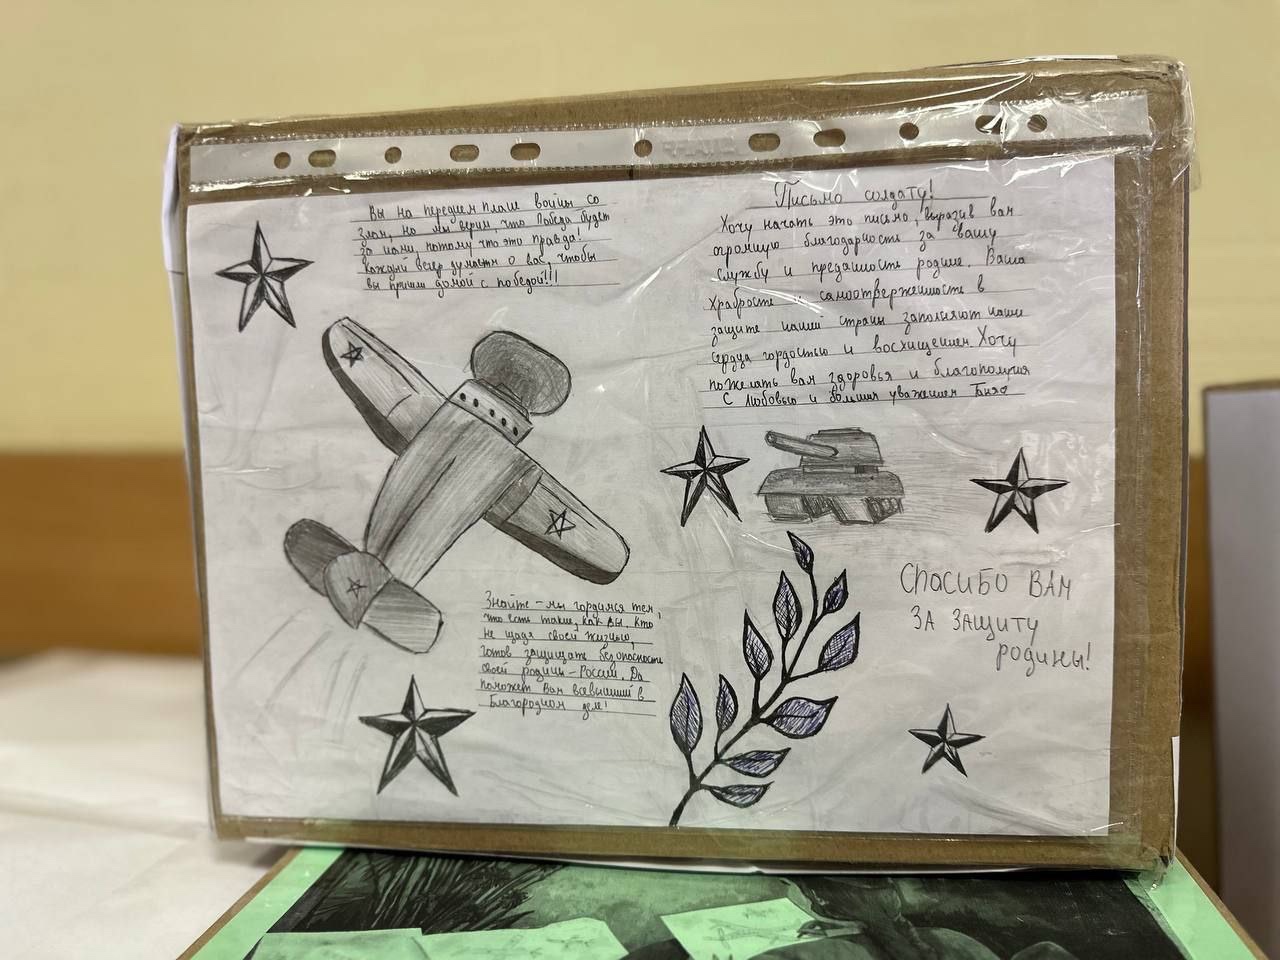 Вы на переднем плане войны со
злом, но мы верим, что Победа будет
за нами, потому что это правда!
Каждый вечер думаем о вас, чтобы
вы пришли домой с победой!!!
Письмо солдату!
Хочу начать это письмо, выразив вам
огромную благодарность за вашу
службу и преданность родине. Ваша
храбрость и самоотверженность в
защите нашей страны заполняют наши
сердца гордостью и восхищением. Хочу
пожелать вам здоровья и благополучия
С любовью и большим уважением Таня
Знайте - мы гордимся тем,
что есть такие, как вы, кто
не щадя своей жизнью,
готов защищать безопасность
своей родины - России. Да
поможет Вам всевышний в
благородном деле!
Спасибо ВАМ
ЗА ЗАЩИТУ
родины!